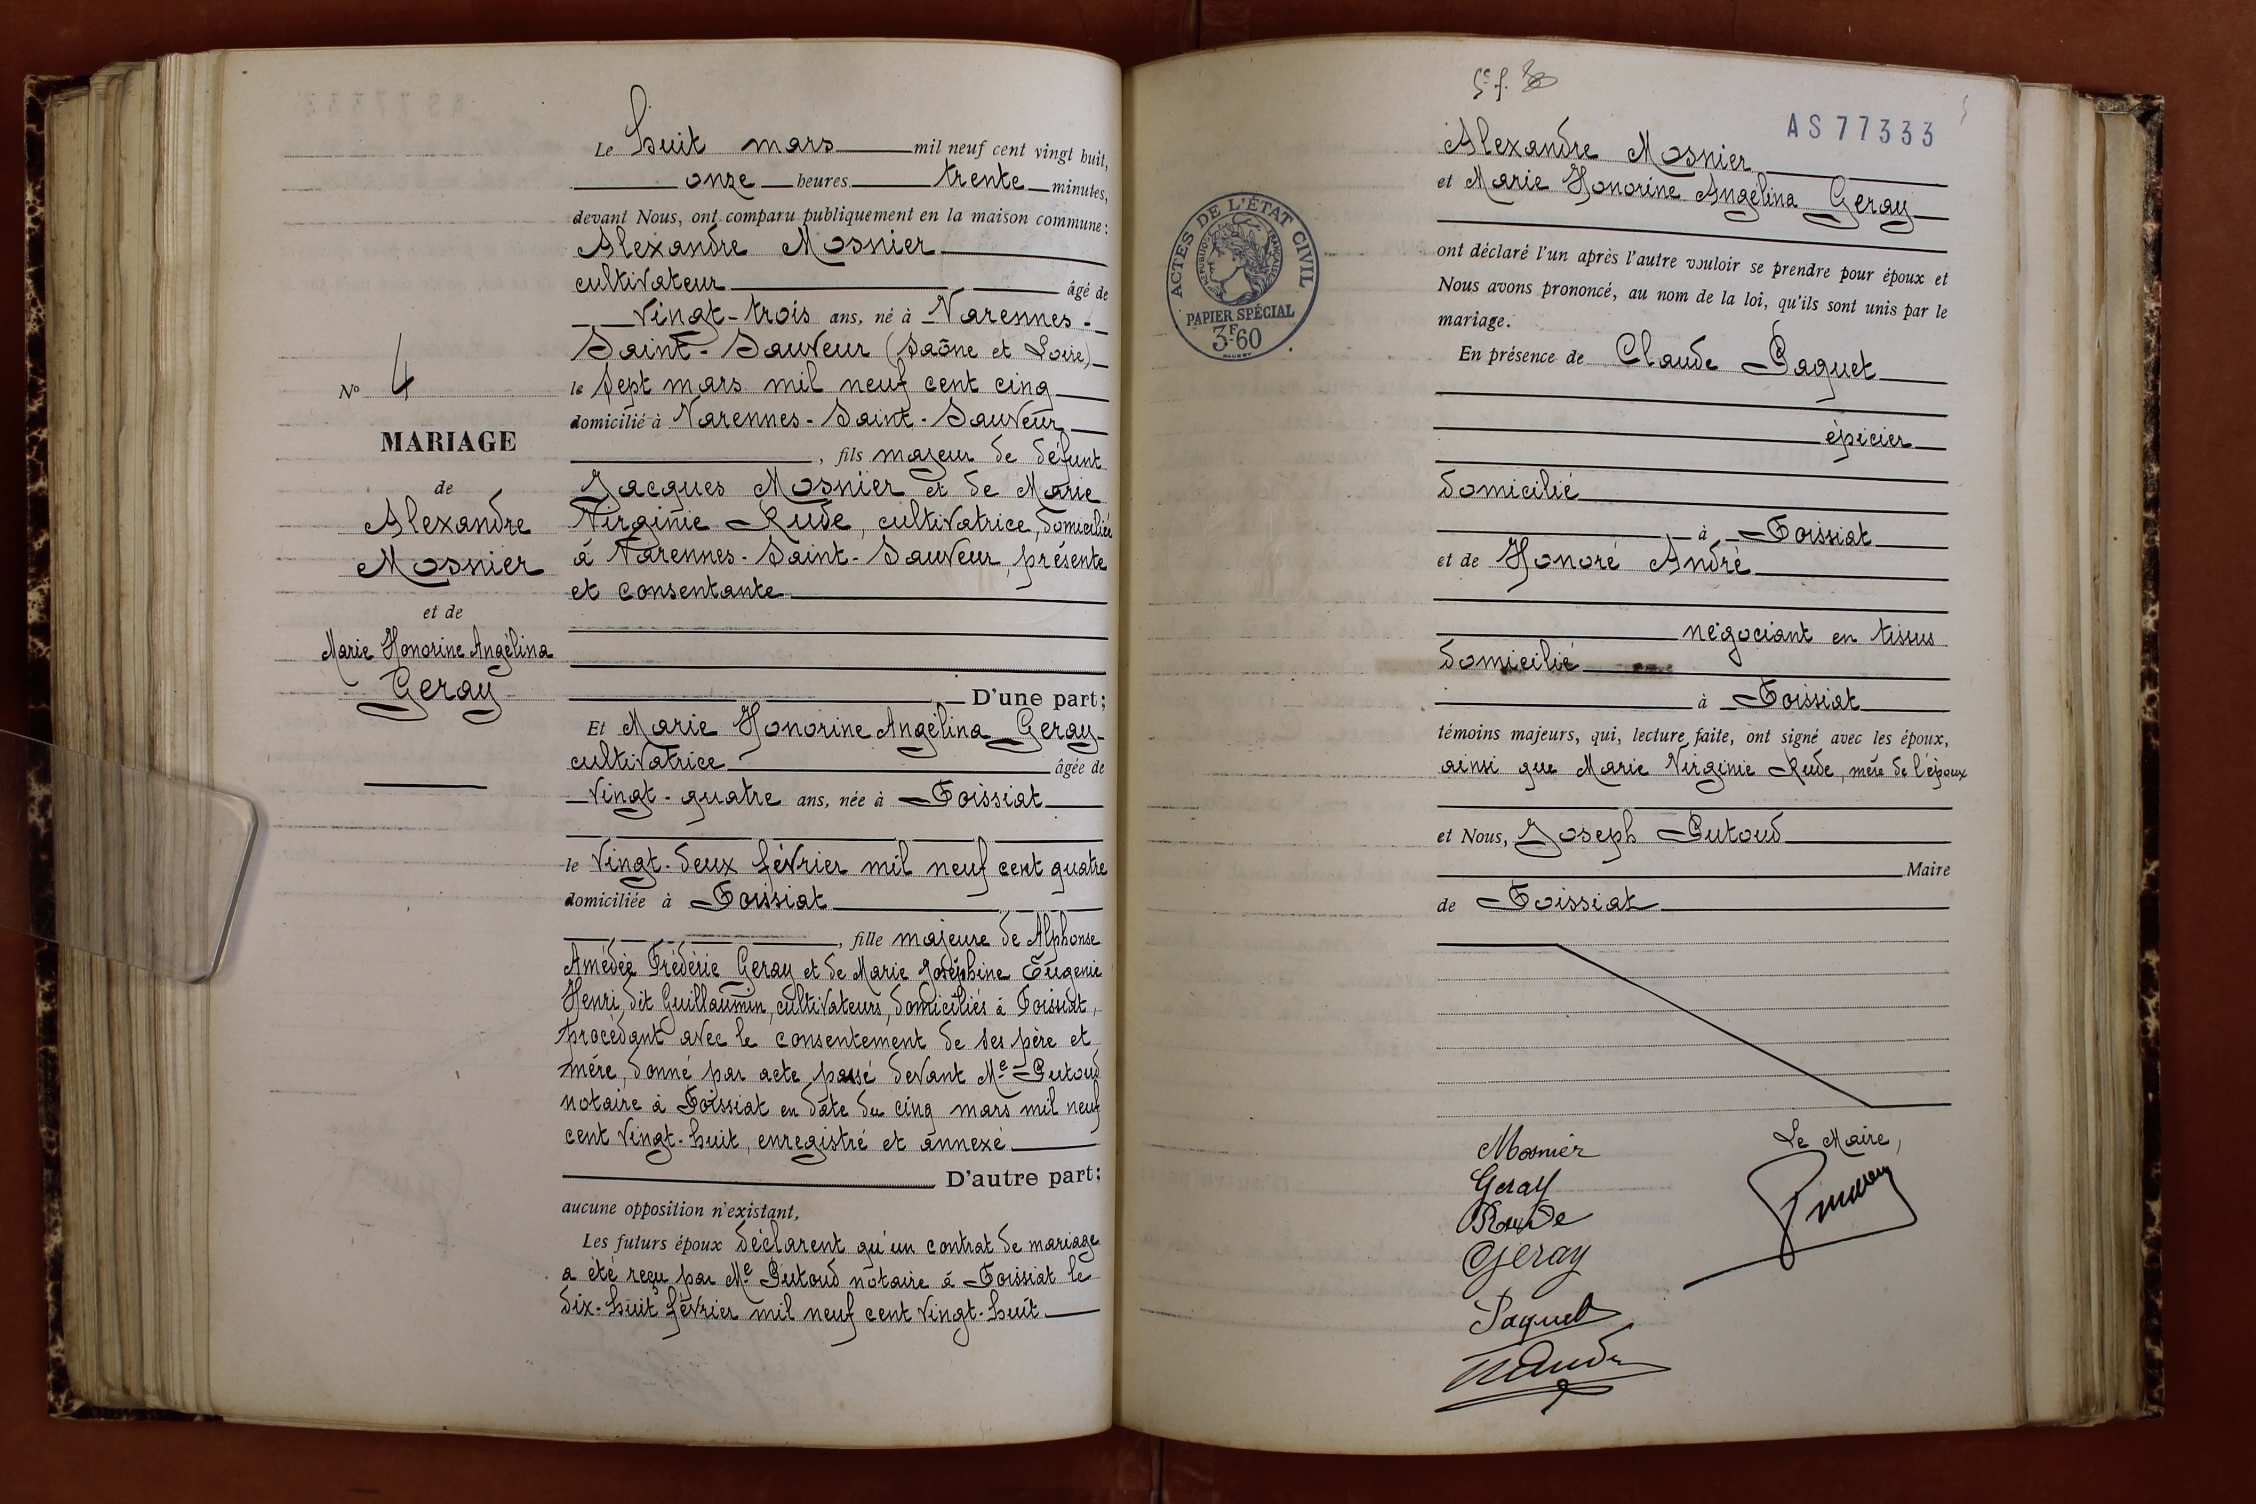 Le huit mars mil neuf cent vingt huit,
onze heures trente minutes,
devant Nous, ont comparu publiquement en la maison commune :
Alexandre Mosnier
cultivateur âgé de
vingt-trois ans, né à Varennes-
Saint-Sauveur (Saône et Loire)
le sept mars mil neuf cent cinq
domicilié à Varennes-Saint-Sauveur
, fils majeur de défunt
Jacques Mosnier et de Marie
Virginie Rude, cultivatrice, domiciliée
à Varennes-Saint-Sauveur, présente
et consentante
D'une part;
Nº 4
MARIAGE
de
Alexandre
Mosnier
et de
Marie Honorine Angélina
Geray
Et Marie Honorine Angélina Geray
cultivatrice âgée de
vingt-quatre ans, née à Foissiat
le vingt-deux février mil neuf cent quatre
domiciliée à Foissiat
, fille majeure de Alphonse
Amédée Frédéric Geray et de Marie Joséphine Eugénie
Henri, dit Guillaumin, cultivateurs, domiciliés à Foissiat,
procédant avec le consentement de ses père et
mère, donné par acte passé devant Me Putoud
notaire à Foissiat en date du cinq mars mil neuf
cent vingt-huit, enregistré et annexé
D'autre part :
aucune opposition n'existant,
Les futurs époux déclarent qu'un contrat de mariage
a été reçu par Me Putoud notaire à Foissiat le
dix-huit février mil neuf cent vingt-huit
AS 77333
ACTES DE L'ÉTAT CIVIL
RÉPUBLIQUE FRANÇAISE
PAPIER SPÉCIAL
3F60
Alexandre Mosnier
et Marie Honorine Angélina Geray
ont déclaré l'un après l'autre vouloir se prendre pour époux et
Nous avons prononcé, au nom de la loi, qu'ils sont unis par le
mariage.
En présence de Claude Paquet
épicier
domicilié
à Foissiat
et de Honoré André
négociant en tissus
domicilié
à Foissiat
témoins majeurs, qui, lecture faite, ont signé avec les époux,
ainsi que Marie Virginie Rude, mère de l'époux
et Nous, Joseph Putoud
Maire
de Foissiat
Mosnier
Geray
Rude
Geray
Paquet
Le Maire,